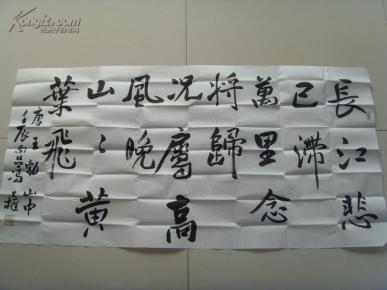 長江悲
已滯
萬里念
將歸
況屬高
風晚
山〻黃
葉飛
唐王勃山中
壬辰
孔夫子旧书网
KongFZ.com